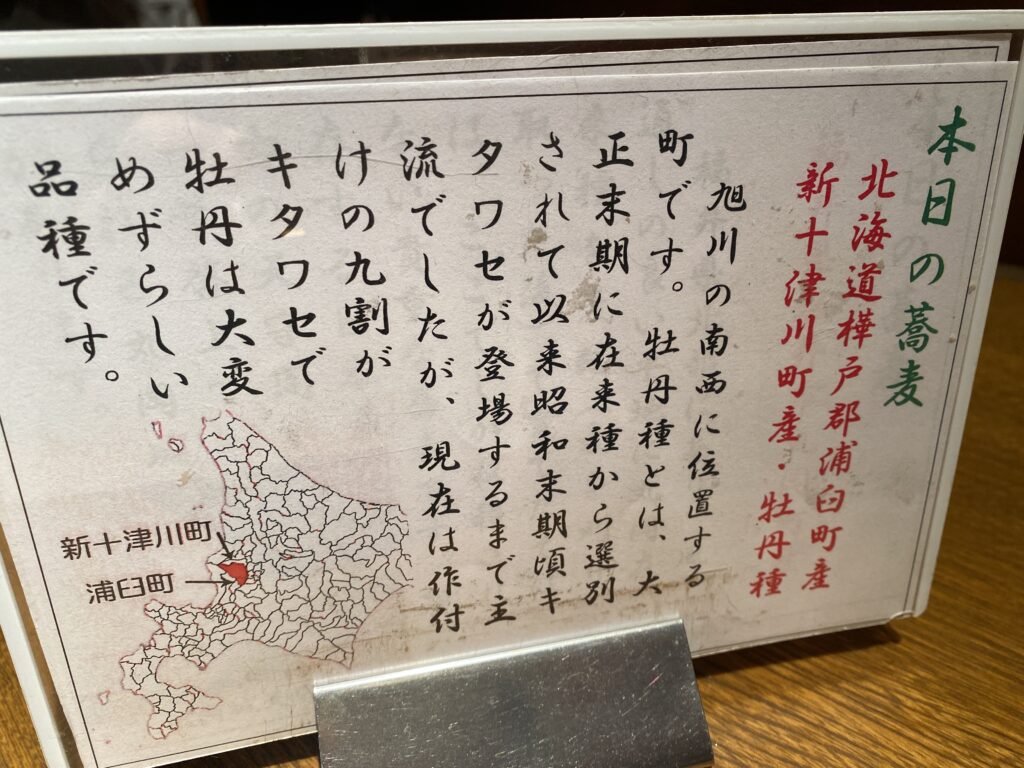 本日の蕎麦
北海道樺戸郡浦臼町産
新十津川町産・牡丹種
旭川の南西に位置する
町です。牡丹種とは、大
正末期に在来種から選別
されて以来昭和末期頃キ
タワセが登場するまで主
流でしたが、現在は作付
けの九割が
キタワセで
牡丹は大変
めずらしい
品種です。
新十津川町
浦臼町